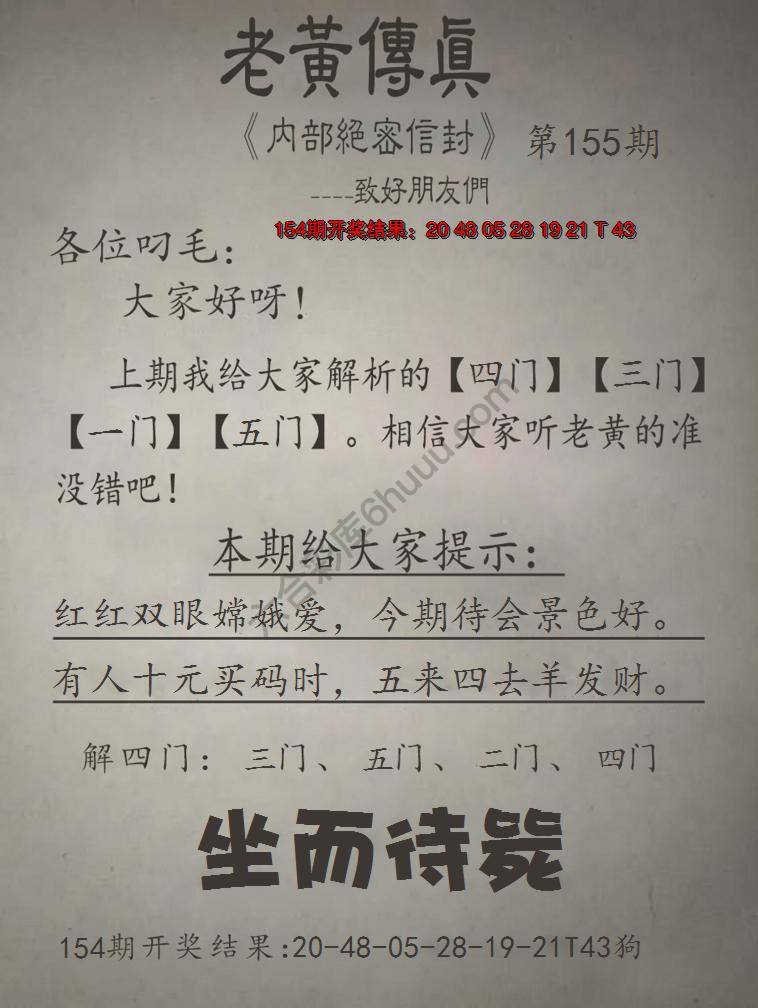 老黃傳眞
《内部絕密信封》 第155期
----致好朋友們
154期开奖结果：20 48 05 28 19 21 T 43
各位叼毛：
大家好呀！
上期我给大家解析的【四门】【三门】
【一门】【五门】。相信大家听老黄的准
没错吧！
本期给大家提示：
红红双眼嫦娥爱，今期待会景色好。
有人十元买码时，五来四去羊发财。
解四门：三门、五门、二门、四门
坐而待毙
154期开奖结果:20-48-05-28-19-21T43狗
六合彩库6huuu.com